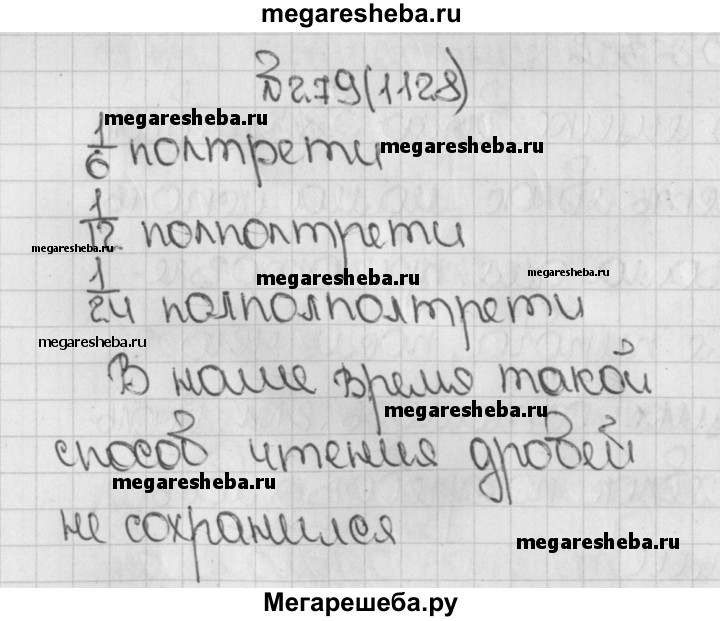 megaresheba.ru
№279(1128)
megaresheba.ru
1/6 полтрети megaresheba.ru
1/12 полполтрети
megaresheba.ru
megaresheba.ru megaresheba.ru
1/24 полполполтрети
megaresheba.ru
В наше время такой
megaresheba.ru
способ чтения дробей
megaresheba.ru
не сохранился
megaresheba.ru
Мегарешеба.ру